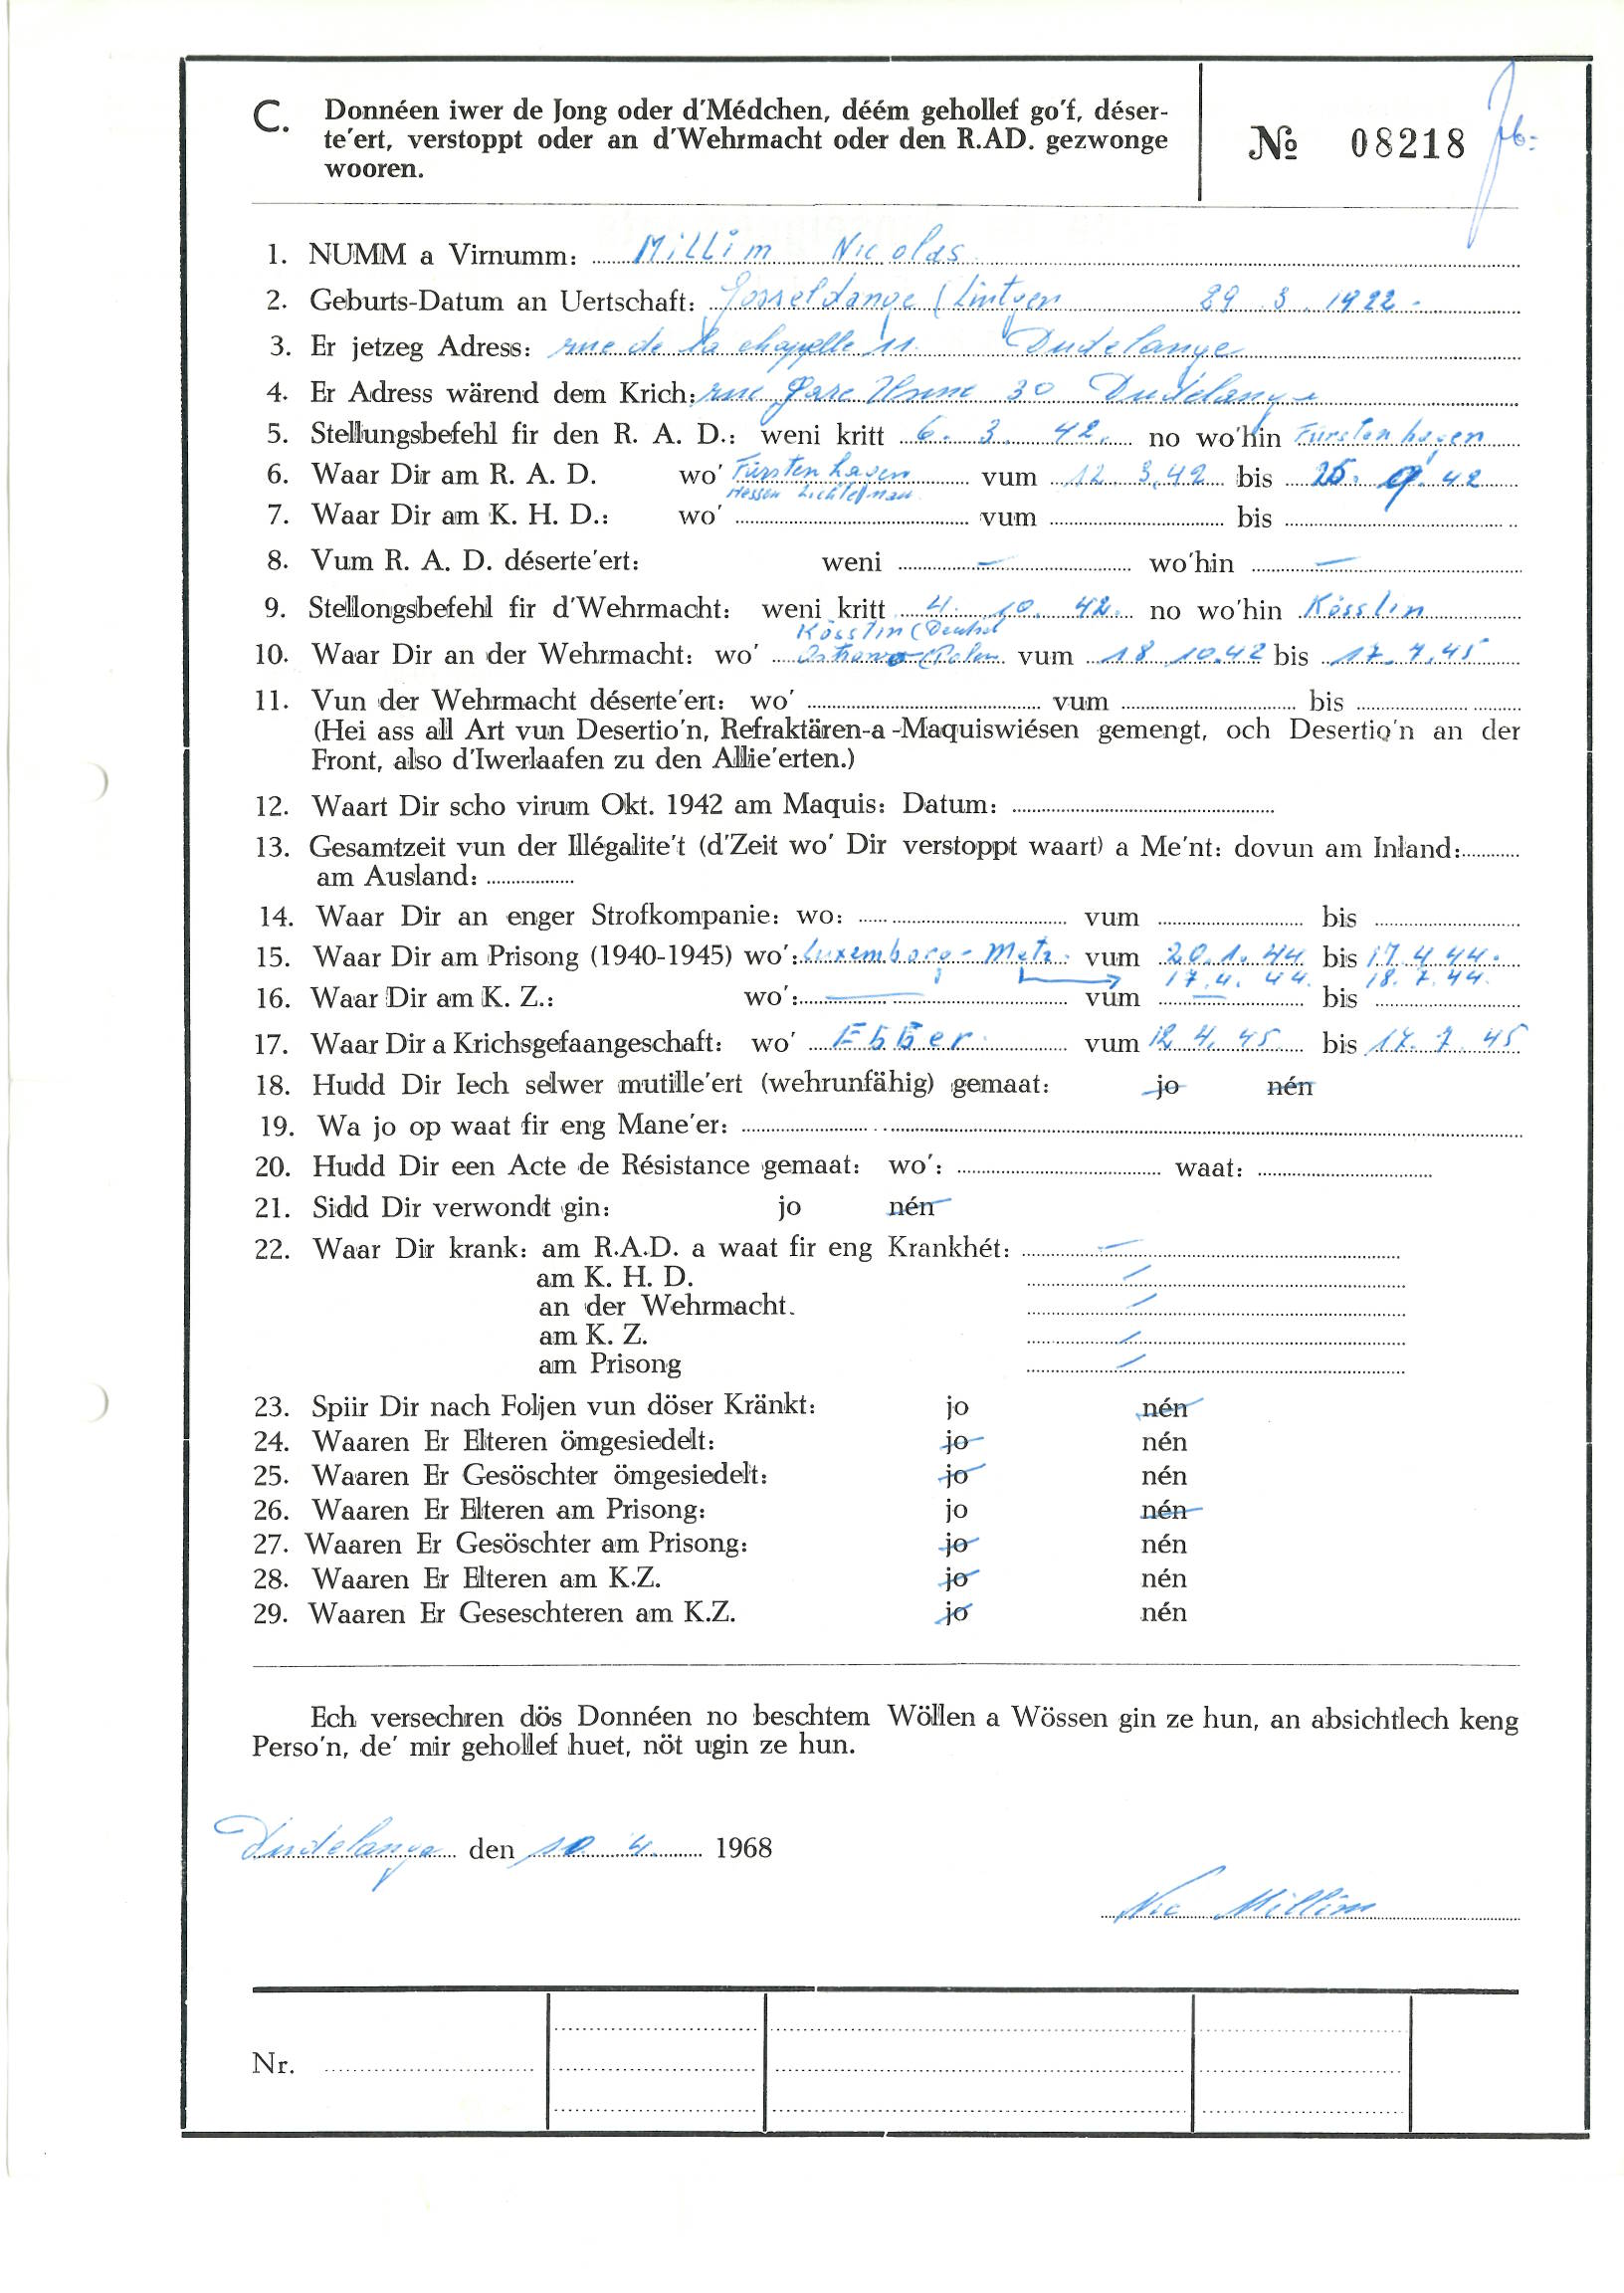 C. Donnéen iwer de Jong oder d'Médchen, déém gehollef go'f, déser-
te'ert, verstoppt oder an d'Wehrmacht oder den R.AD. gezwonge
wooren.
№ 08218
1. NUMM a Virnumm: Millim Nicolas
2. Geburts-Datum an Uertschaft: Gosseldange (Lintgen 29.3.1922.
3. Er jetzeg Adress: rue de la chapelle 11. Dudelange
4. Er Adress wärend dem Krich: rue Gare Usine 30 Dudelange
5. Stellungsbefehl fir den R. A. D.: weni kritt 6. 3. 42. no wo'hin Fürstenhagen
6. Waar Dir am R. A. D. wo' Fürstenhagen vum 12 3.42 bis 25. 9. 42
Hessen Lichtenau
7. Waar Dir am K. H. D.: wo' vum bis
8. Vum R. A. D. déserte'ert: weni – wo'hin –
9. Stellongsbefehl fir d'Wehrmacht: weni kritt 4. 10. 42. no wo'hin Kösslin
Kösslin (Deutsch
10. Waar Dir an der Wehrmacht: wo' Ostrowo (Polen vum 18 10.42 bis 17.7.45
11. Vun der Wehrmacht déserte'ert: wo' vum bis
(Hei ass all Art vun Desertio'n, Refraktären-a-Maquiswiésen gemengt, och Desertio'n an der
Front, also d'Iwerlaafen zu den Allie'erten.)
12. Waart Dir scho virum Okt. 1942 am Maquis: Datum:
13. Gesamtzeit vun der Illégalite't (d'Zeit wo' Dir verstoppt waart) a Me'nt: dovun am Inland:
am Ausland:
14. Waar Dir an enger Strofkompanie: wo: vum bis
15. Waar Dir am Prisong (1940-1945) wo': Luxemborg - Metz. vum 20.1.44 bis 17.4.44.
17.4.44. 18.7.44.
16. Waar Dir am K. Z.: wo': – vum – bis
17. Waar Dir a Krichsgefaangeschaft: wo' Ebber vum 12 4. 45 bis 17. 7. 45
18. Hudd Dir Iech selwer mutille'ert (wehrunfähig) gemaat: jo nén
19. Wa jo op waat fir eng Mane'er:
20. Hudd Dir een Acte de Résistance gemaat: wo': waat:
21. Sidd Dir verwondt gin: jo nén
22. Waar Dir krank: am R.A.D. a waat fir eng Krankhét: –
am K. H. D. –
an der Wehrmacht. –
am K. Z. –
am Prisong –
23. Spiir Dir nach Foljen vun döser Kränkt: jo nén
24. Waaren Er Elteren ömgesiedelt: jo nén
25. Waaren Er Gesöschter ömgesiedelt: jo nén
26. Waaren Er Elteren am Prisong: jo nén
27. Waaren Er Gesöschter am Prisong: jo nén
28. Waaren Er Elteren am K.Z. jo nén
29. Waaren Er Geseschteren am K.Z. jo nén
Ech versechren dös Donnéen no beschtem Wöllen a Wössen gin ze hun, an absichtlech keng
Perso'n, de' mir gehollef huet, nöt ugin ze hun.
Dudelange den 10. 4. 1968
Nic Millim
Nr.